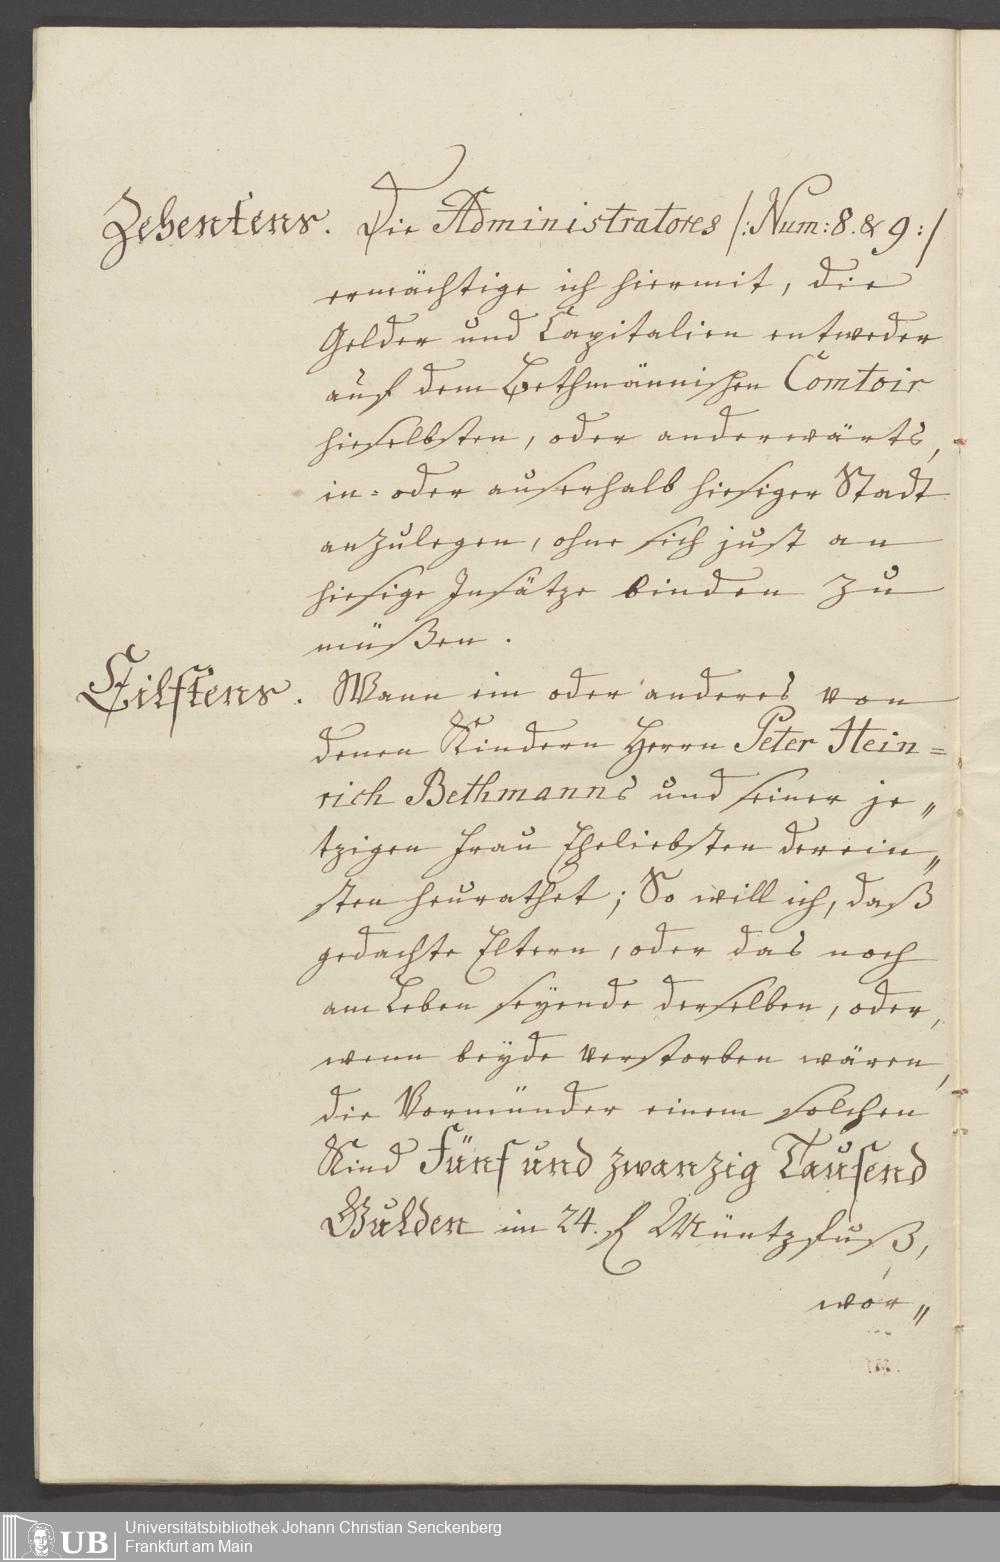 Zehentens. Die Administratores /:Num:8.&9:/
ermächtige ich hiermit, die
Gelder und Capitalien entweder
auf dem Bethmännischen Comtoir
hieselbsten, oder anderwärts,
in- oder auserhalb hiesiger Stadt
anzulegen, ohne sich just an
hiesige Insätze binden zu
müßen.
Eilftens. Wann ein oder anderes von
denen Kindern Herrn Peter Hein=
rich Bethmanns und seiner je„
tzigen Frau Eheliebsten derein„
sten heurathet; So will ich, daß
gedachte Eltern, oder das noch
am Leben seyende derselben, oder,
wenn beyde verstorben wären,
die Vormünder einem solchen
Kind Fünf und zwanzig Tausend
Gulden im 24. f Müntzfuß,
wor„
UB
Universitätsbibliothek Johann Christian Senckenberg
Frankfurt am Main